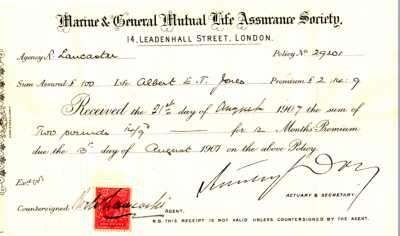 Marine & General Mutual Life Assurance Society,
14, LEADENHALL STREET, LONDON.
Agency R. Lancaster Policy No 29201
Sum Assured £ 100 Life Albert E. T. Jones Premium £ 2 : 9
Received the 21st day of August 1907 the sum of
Two pounds for 12 Months Premium
due the 3rd day of August 1907 on the above Policy.
Exd
ACTUARY & SECRETARY.
Countersigned Lancaster AGENT.
N.B. THIS RECEIPT IS NOT VALID UNLESS COUNTERSIGNED BY THE AGENT.